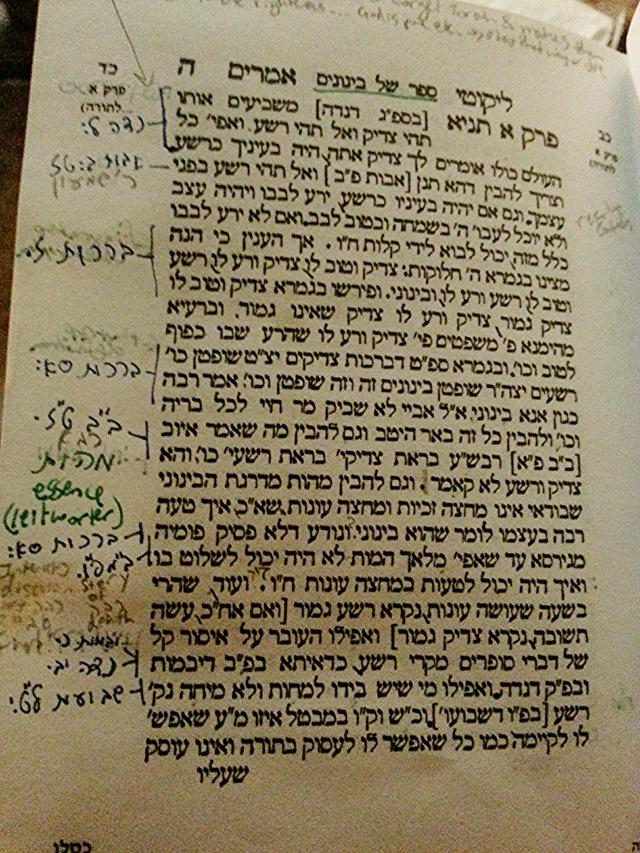 ליקוטי ספר של בינונים אמרים ה
פרק א תניא [בספ״ג דנדה] משביעים אותו
תהי צדיק ואל תהי רשע ואפי׳ כל
העולם כולו אומרים לך צדיק אתה היה בעיניך כרשע.
וצריך להבין דהא תנן [אבות פ״ב] ואל תהי רשע בפני
עצמך. וגם אם יהיה בעיניו כרשע, ירע לבבו ויהיה עצב
ולא יוכל לעבוד ה׳ בשמחה ובטוב לבב. ואם לא ירע לבבו
כלל מזה, יכול לבוא לידי קלות ח״ו. אך הענין כי הנה
מצינו בגמרא ה׳ חלוקות. צדיק וטוב לו, צדיק ורע לו, רשע
וטוב לו, רשע ורע לו, ובינוני. ופירשו בגמרא צדיק וטוב לו
צדיק גמור, צדיק ורע לו צדיק שאינו גמור, וברעיא
מהימנא פ׳ משפטים פי׳ צדיק ורע לו שהרע שבו כפוף
לטוב וכו׳. ובגמרא ספ״ט דברכות צדיקים יצ״ט שופטן כו׳
רשעים יצה״ר שופטן בינונים זה וזה שופטן וכו׳. אמר רבה
כגון אנא בינוני. א״ל אביי לא שביק מר חיי לכל בריה
וכו׳. ולהבין כל זה באר היטב וגם להבין מה שאמר איוב
[ב״ב פ״א] רבש״ע בראת צדיקי׳ בראת רשעי׳ כו׳, והא
צדיק ורשע לא קאמר. וגם להבין מהות מדרגת הבינוני
שבודאי אינו מחצה זכיות ומחצה עונות, שא״כ, איך טעה
רבה בעצמו לומר שהוא בינוני. ונודע דלא פסיק פומיה
מגירסא עד שאפי׳ מלאך המות לא היה יכול לשלוט בו
ואיך היה יכול לטעות במחצה עונות ח״ו. ועוד, שהרי
בשעה שעושה עונות, נקרא רשע גמור [ואם אח״כ, עשה
תשובה, נקרא צדיק גמור] ואפילו העובר על איסור קל
של דברי סופרים מקרי רשע, כדאיתא בפ״ב דיבמות
ובפ״ק דנדה, ואפילו מי שיש בידו למחות ולא מיחה נק׳
רשע [בפ״ו דשבועו׳], וכ״ש וק״ו במבטל איזו מ״ע שאפש׳
לו לקיימה כמו כל שאפשר לו לעסוק בתורה ואינו עוסק
שעליו
כד
פרק א
נדה ל:
ברכות ז.
ברכות סא:
ב״ב ט״ז.
מהות
essence
ברכות סא:
ב״מ פ״ו.
נדה יב.
שבועות לט: